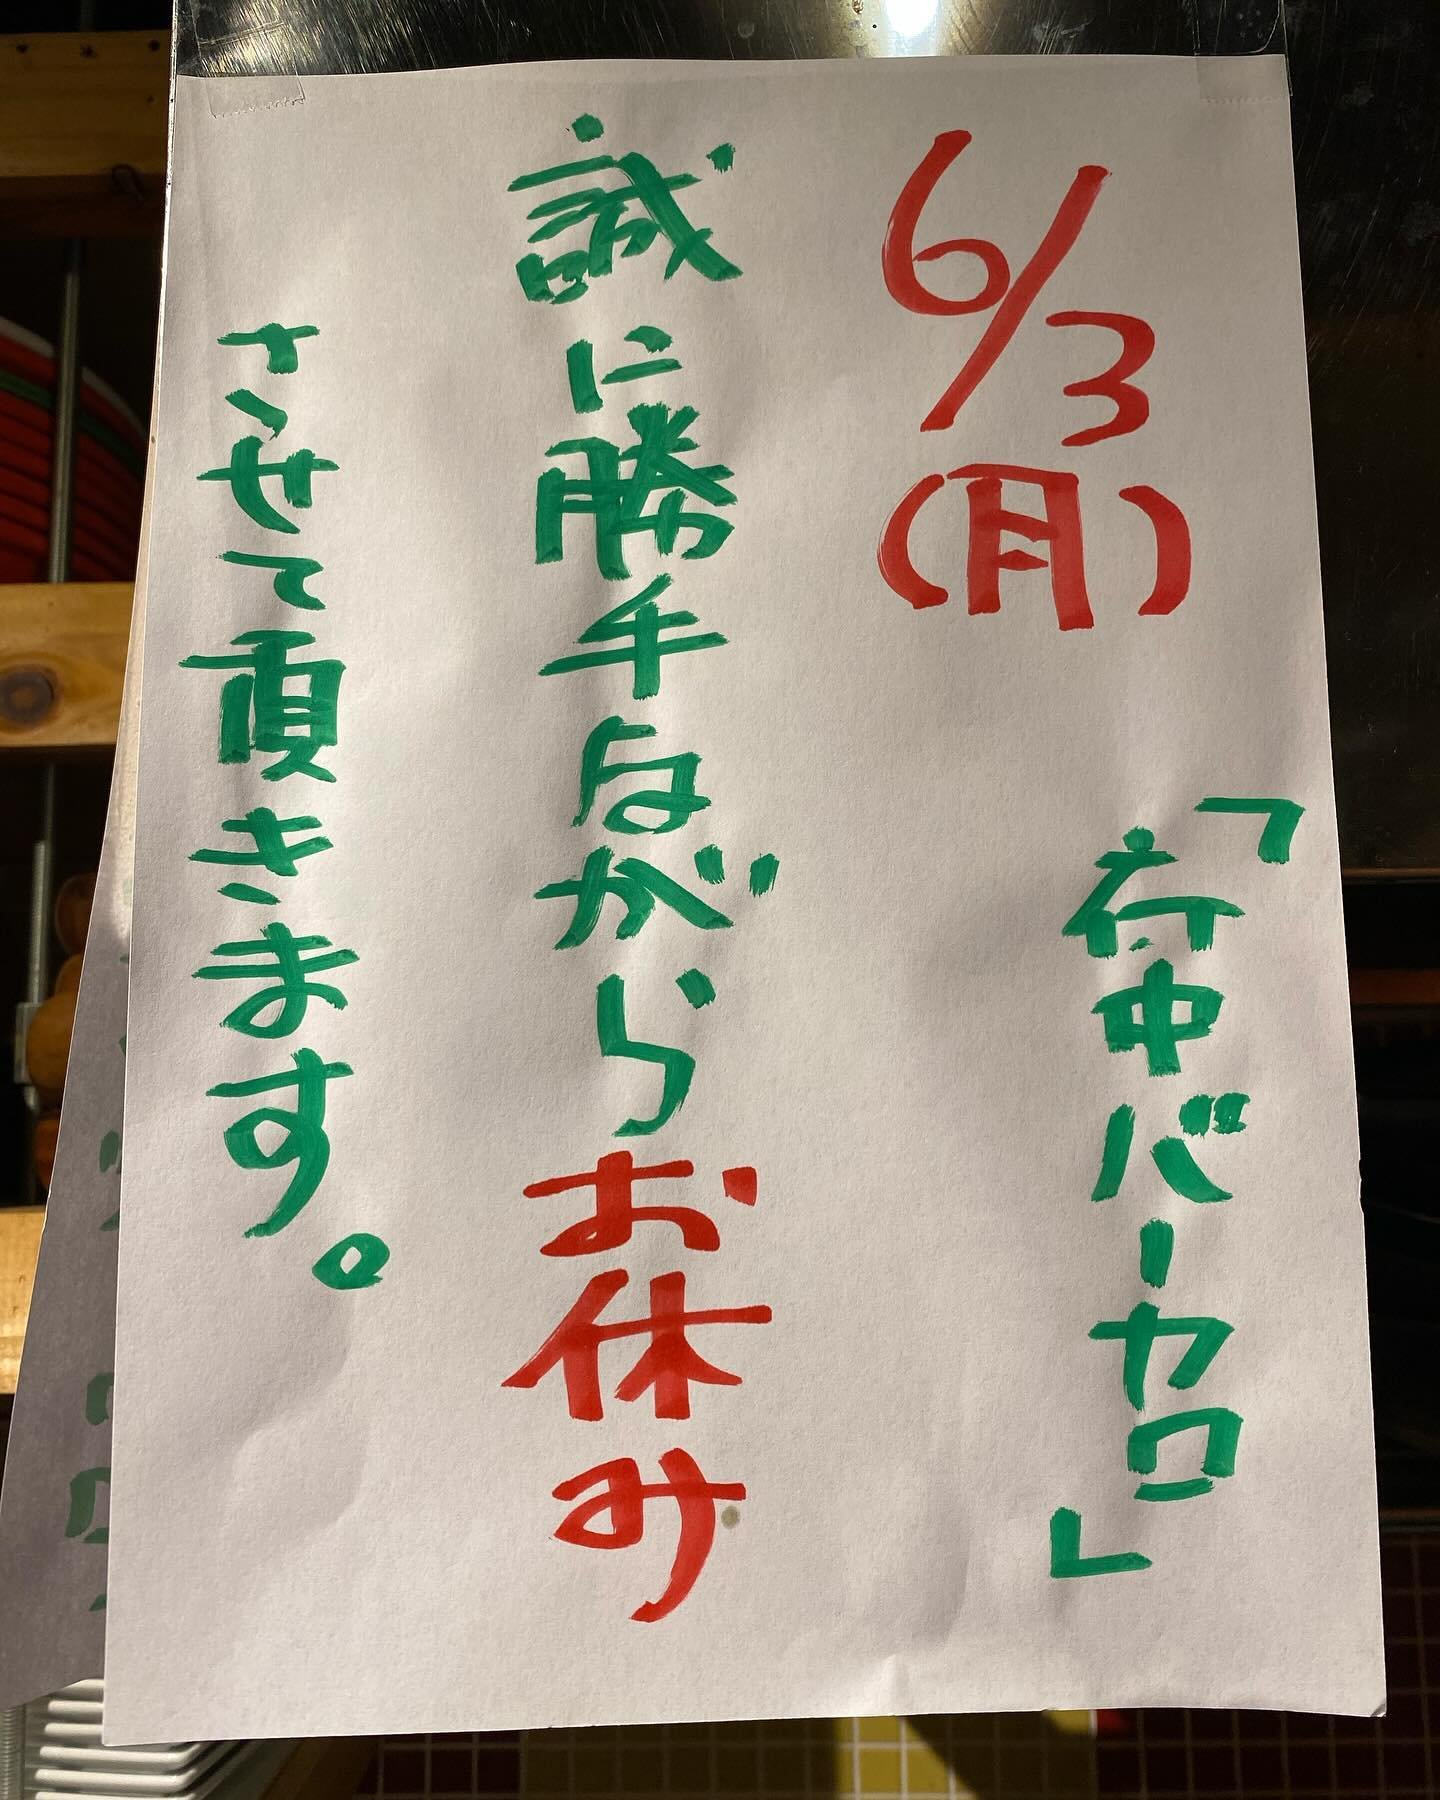 6/3(月)
「府中バーカロ」
誠に勝手ながらお休み
させて頂きます。